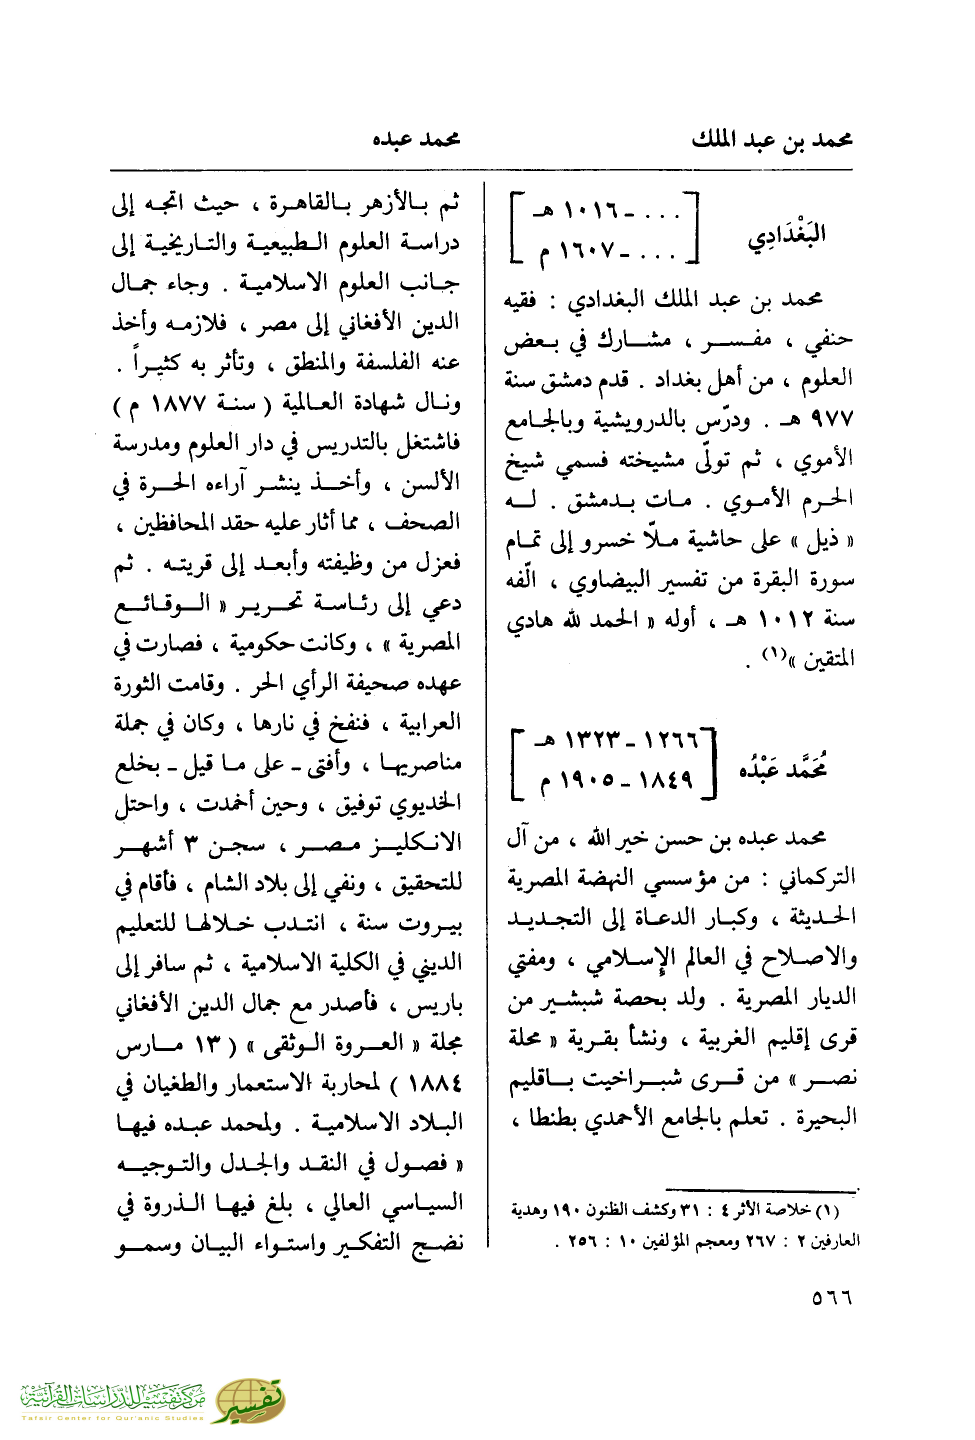 محمد بن عبد الملك
محمد عبده
البَغْدَادِي
[ ... - ١٠١٦ هـ ]
[ ... - ١٦٠٧ م ]
محمد بن عبد الملك البغدادي : فقيه
حنفي ، مفسر ، مشارك في بعض
العلوم ، من أهل بغداد . قدم دمشق سنة
٩٧٧ هـ . ودرّس بالدرويشية وبالجامع
الأموي ، ثم تولّى مشيخته فسمي شيخ
الحرم الأموي . مات بدمشق . له
« ذيل » على حاشية ملّا خسرو إلى تمام
سورة البقرة من تفسير البيضاوي ، الّفه
سنة ١٠١٢ هـ ، أوله « الحمد لله هادي
المتقين »(١) .
مُحَمَّد عَبْدُه
[ ١٢٦٦ - ١٣٢٣ هـ ]
[ ١٨٤٩ - ١٩٠٥ م ]
محمد عبده بن حسن خير الله ، من آل
التركماني : من مؤسسي النهضة المصرية
الحديثة ، وكبار الدعاة إلى التجديد
والاصلاح في العالم الإسلامي ، ومفتي
الديار المصرية . ولد بحصة شبشير من
قرى إقليم الغربية ، ونشأ بقرية « محلة
نصر » من قرى شبراخيت باقليم
البحيرة . تعلم بالجامع الأحمدي بطنطا ،
(١) خلاصة الأثر ٤ : ٣١ وكشف الظنون ١٩٠ وهدية
العارفين ٢ : ٢٦٧ ومعجم المؤلفين ١٠ : ٢٥٦ .
ثم بالأزهر بالقاهرة ، حيث اتجه إلى
دراسة العلوم الطبيعية والتاريخية إلى
جانب العلوم الاسلامية . وجاء جمال
الدين الأفغاني إلى مصر ، فلازمه وأخذ
عنه الفلسفة والمنطق ، وتأثر به كثيراً .
ونال شهادة العالمية ( سنة ١٨٧٧ م )
فاشتغل بالتدريس في دار العلوم ومدرسة
الألسن ، وأخذ ينشر آراءه الحرة في
الصحف ، مما أثار عليه حقد المحافظين ،
فعزل من وظيفته وأبعد إلى قريته . ثم
دعي إلى رئاسة تحرير « الوقائع
المصرية » ، وكانت حكومية ، فصارت في
عهده صحيفة الرأي الحر . وقامت الثورة
العرابية ، فنفخ في نارها ، وكان في جملة
مناصريها ، وأفتى - على ما قيل - بخلع
الخديوي توفيق ، وحين أخمدت ، واحتل
الانكليز مصر ، سجن ٣ أشهر
للتحقيق ، ونفي إلى بلاد الشام ، فأقام في
بيروت سنة ، انتدب خلالها للتعليم
الديني في الكلية الاسلامية ، ثم سافر إلى
باريس ، فأصدر مع جمال الدين الأفغاني
مجلة « العروة الوثقى » ( ١٣ مارس
١٨٨٤ ) لمحاربة الاستعمار والطغيان في
البلاد الاسلامية . ولمحمد عبده فيها
« فصول في النقد والجدل والتوجيه
السياسي العالي ، بلغ فيها الذروة في
نضج التفكير واستواء البيان وسمو
٥٦٦
تفسير
مركز تفسير للدراسات القرآنية
Tafsir Center for Qur'anic Studies